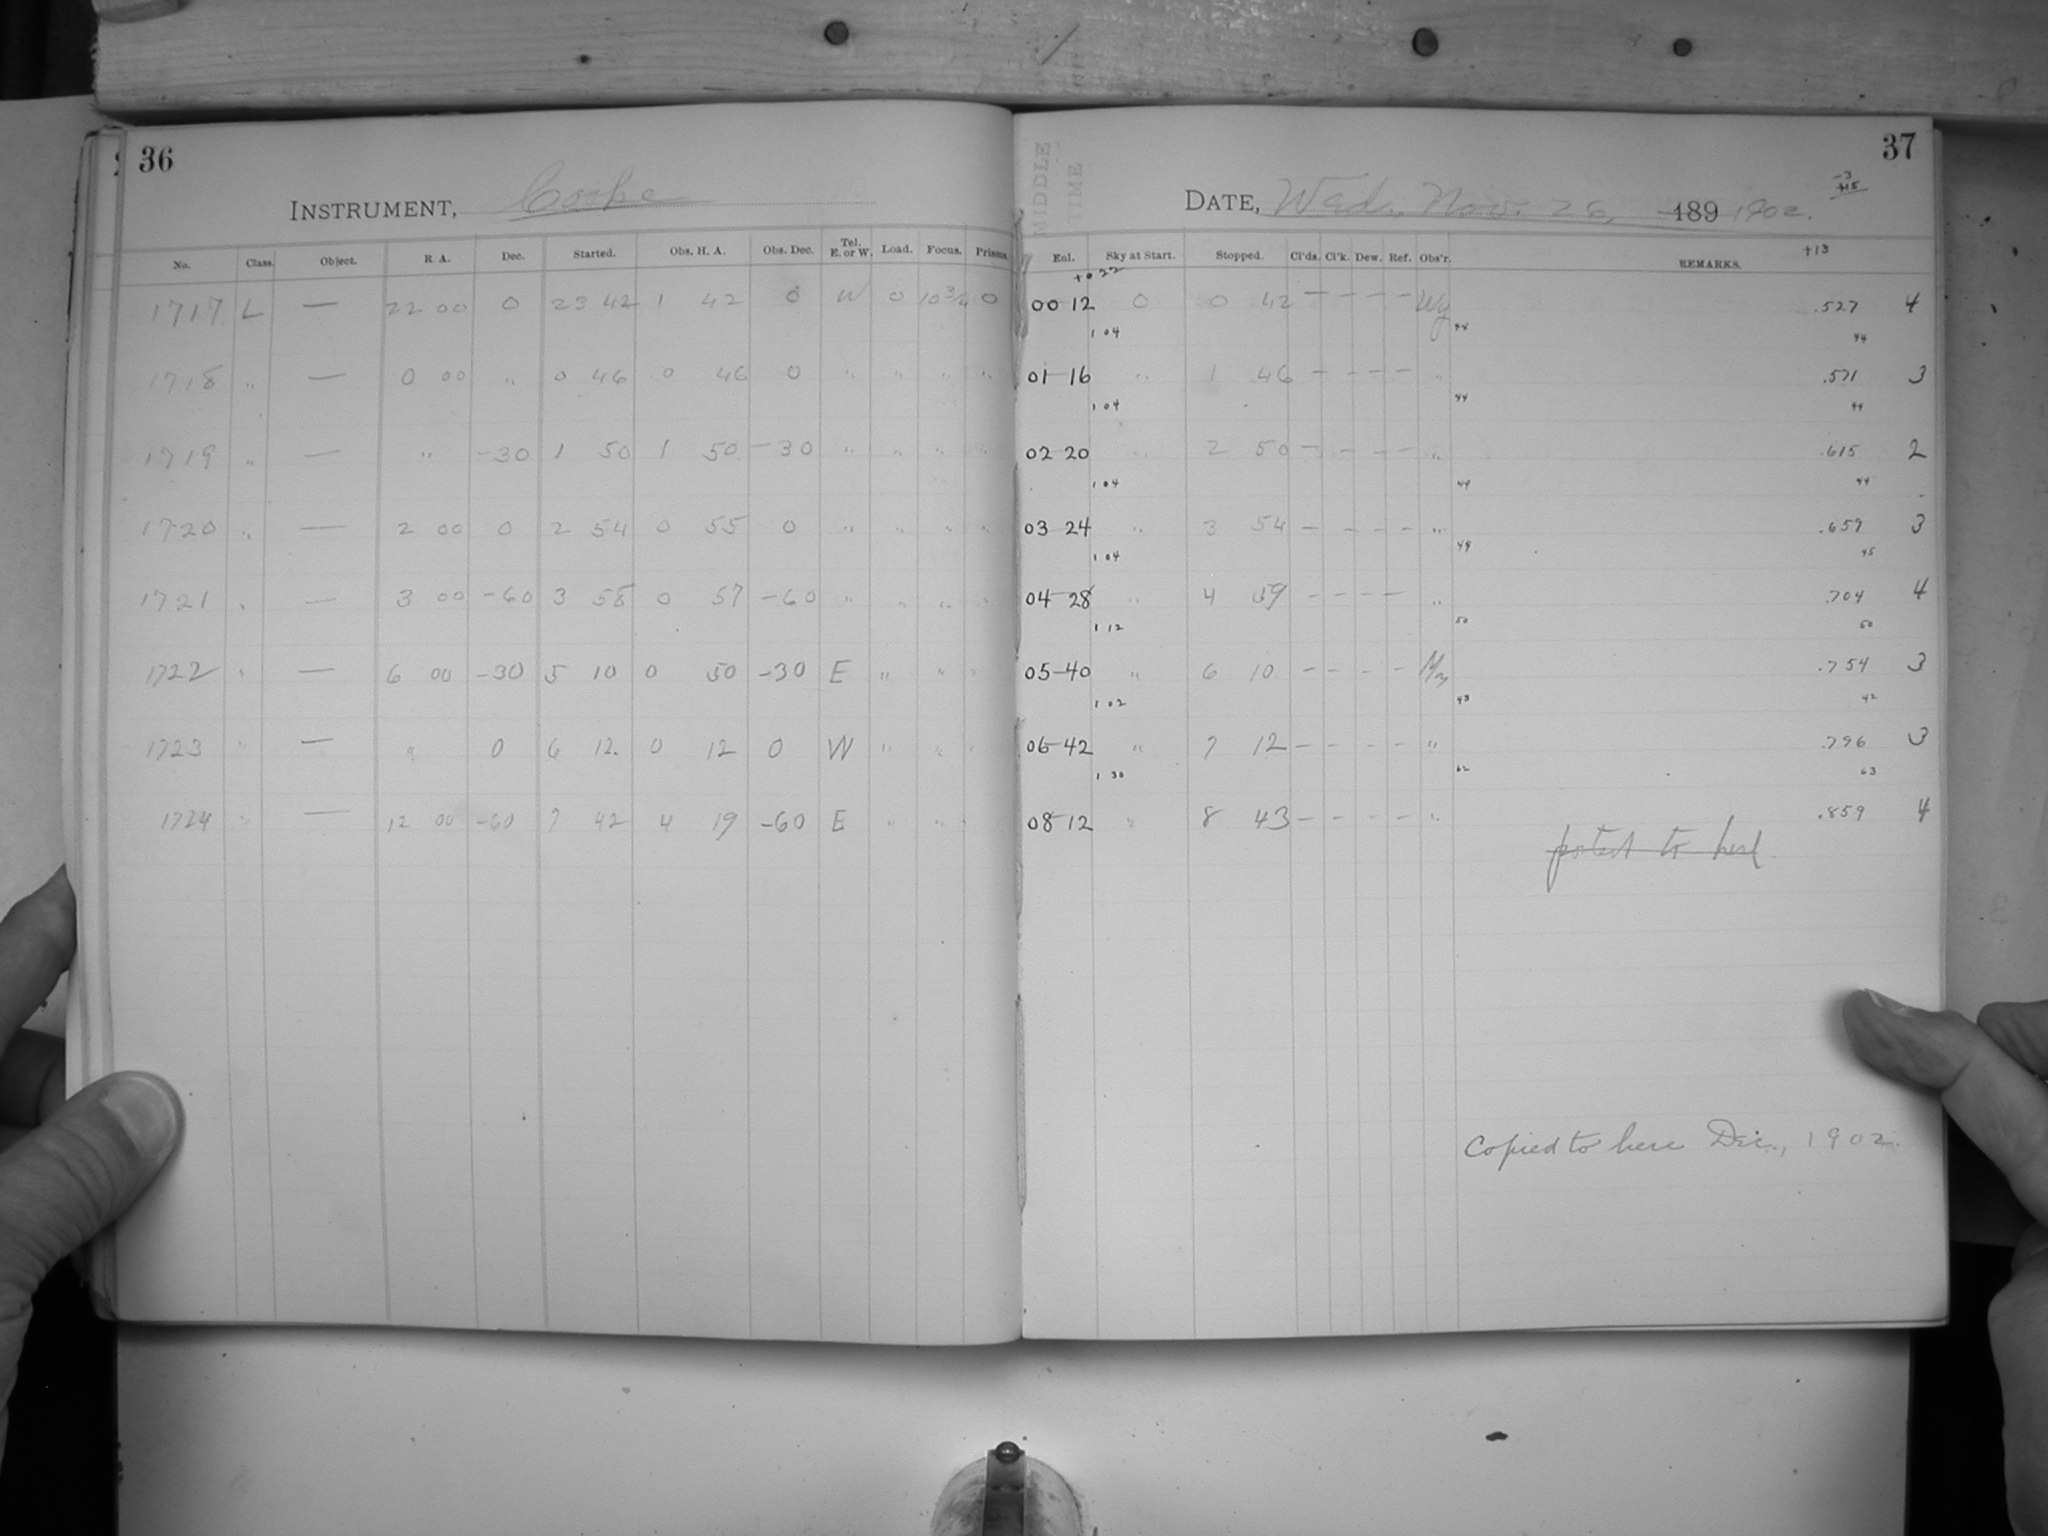 36
INSTRUMENT, Cooke
No. Class. Object. R. A. Dec. Started. Obs. H. A. Obs. Dec. Tel. E. or W. Load. Focus. Prisms.
1717 L — 22 00 0 23 42 1 42 0 W 0 10 3/4 0
1718 " — 0 00 " 0 46 0 46 0 " " " "
1719 " — " -30 1 50 1 50 -30 " " " "
1720 " — 2 00 0 2 54 0 55 0 " " " "
1721 " — 3 00 -60 3 58 0 57 -60 " " " "
1722 " — 6 00 -30 5 10 0 50 -30 E " " "
1723 " — " 0 6 12 0 12 0 W " " "
1724 " — 12 00 -60 7 42 4 19 -60 E " " "
37
MIDDLE
TIME
-3
+15
DATE, Wed. Nov. 26, 189 1902.
+13
Exl. Sky at Start. Stopped. Cl'ds. Cl'k. Dew. Ref. Obs'r. REMARKS.
+0 22
00-12 0 0 42 — — — — Wy .527 4
1 04 44 44
01-16 " 1 46 — — — — " .571 3
1 04 44 44
02-20 2 50 — — — — " .615 2
1 04 44 44
03-24 " 3 54 — — — — " .659 3
1 04 45
04-28 " 4 59 — — — — " .704 4
1 12 50 50
05-40 " 6 10 — — — — .754 3
1 02 43 42
06-42 " 7 12 — — — — " .796 3
1 30 62 63
08-12 " 8 43 — — — — " .859 4
posted to here.
Copied to here Dec., 1902.